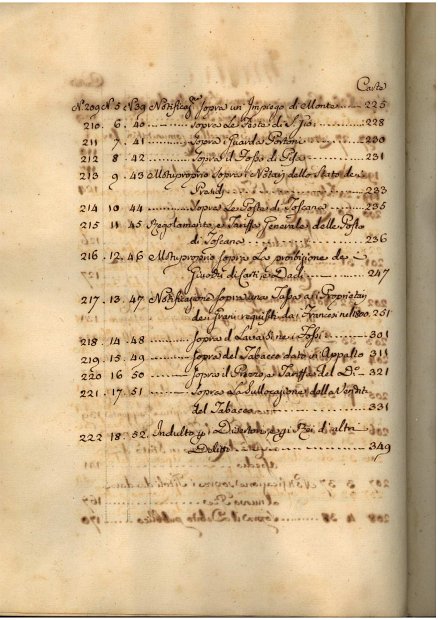 Carte
N. 209 N. 5 N. 39 Notificaz. sopra un Impiego di Monte ...... 225
210 . 6 . 40 ............ sopra le Feste di S. ...... 228
211 7 . 41 ............ sopra i Guarda Portoni ...... 230
212 8 . 42 ............ sopra il ...... 231
213 9 . 43 Motuproprio sopra i Notari dello Stato de
Presidj ............ 233
214 10 . 44 ............ sopra Le Poste di Toscana ...... 235
215 11 45 Regolamento e Tariffa Generale delle Poste
di Toscana ............ 236
216 . 12 . 46 Motuproprio sopra La proibizione de
Giuochi di Carti, e Dadi ............ 247
217 . 13 . 47 Notificazione sopra una Tassa ai Proprietarj
de Grani requisiti da Francesi nel 1800. 251
218 . 14 . 48 ............ sopra ...... 301
219 . 15 . 49 ............ sopra del Tabacco dato in Appalto 311
220 16 50 ............ sopra il Prezzo, e Tariffa del D.o 321
221 . 17 . 51 ............ sopra La Bullettazione della Vendita
del Tabacco ............ 331
222 . 18 . 52 . Indulto p. i Disertori, e pei Rei d'altri
Delitti ............ 349